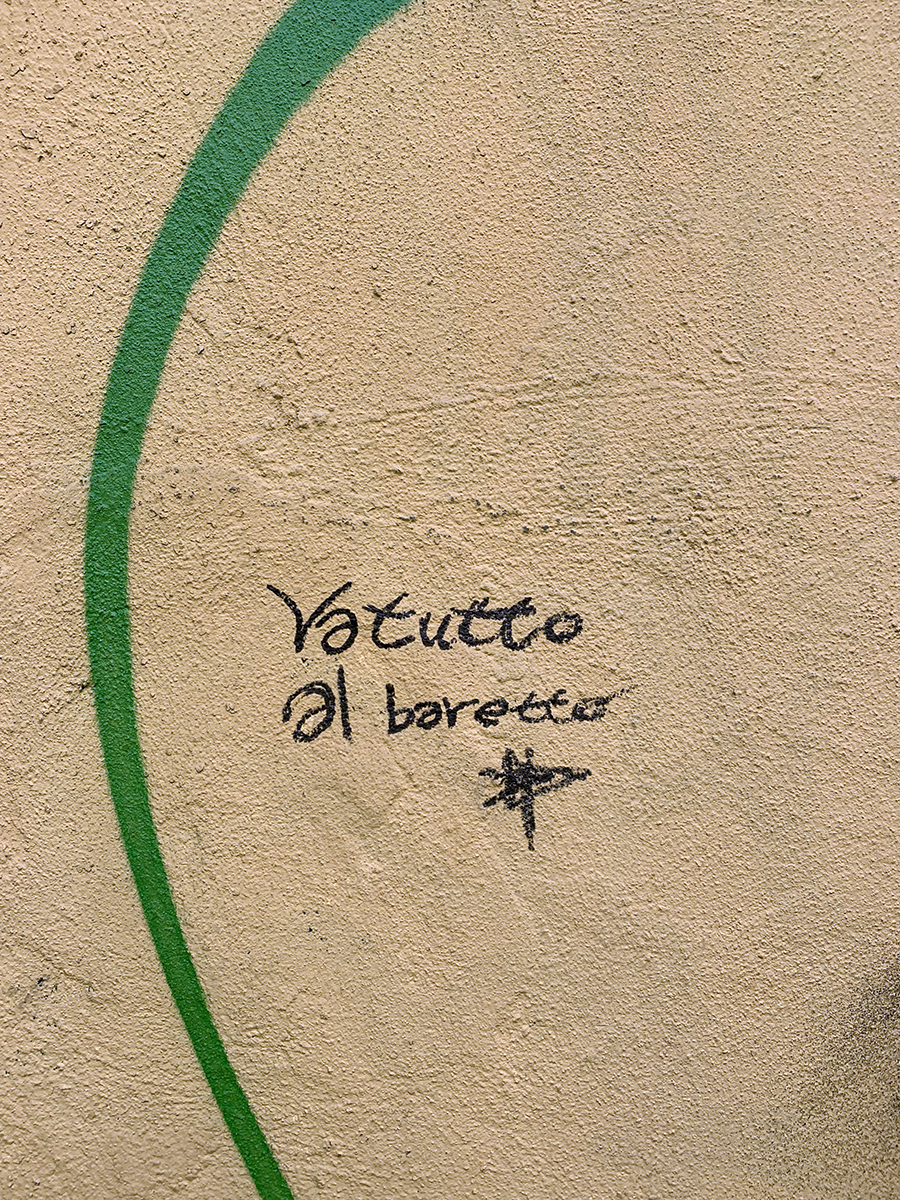 Va tutto
al baretto